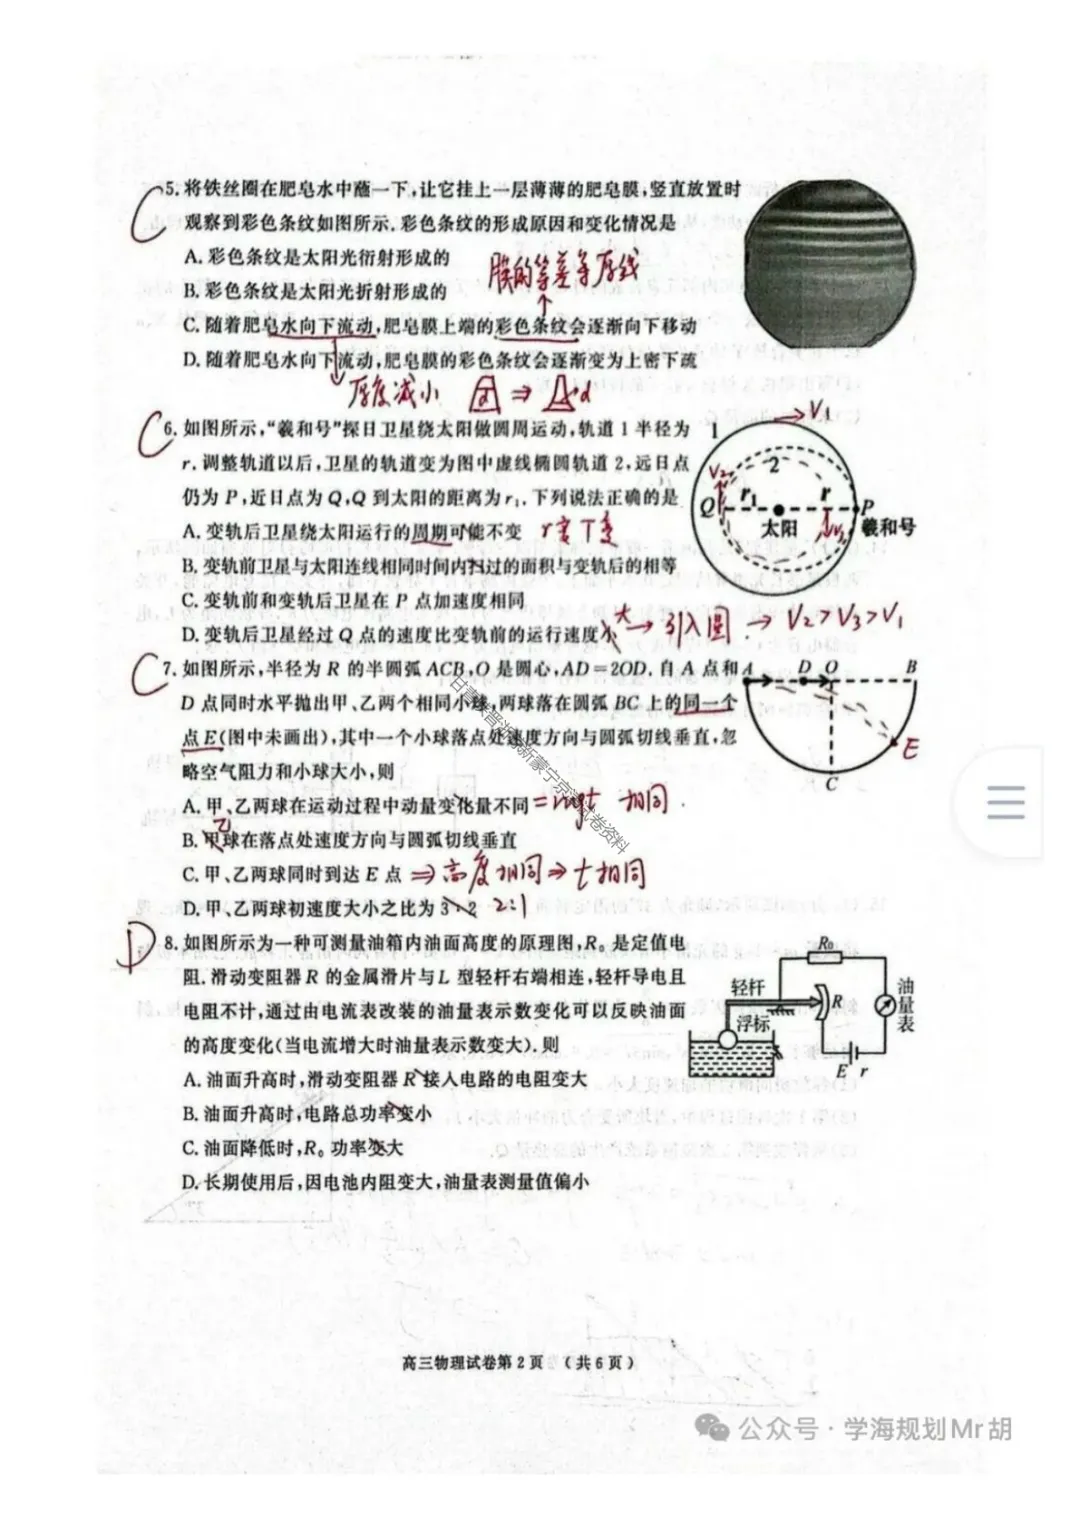 C
5. 将铁丝圈在肥皂水中蘸一下,让它挂上一层薄薄的肥皂膜,竖直放置时
观察到彩色条纹如图所示. 彩色条纹的形成原因和变化情况是
A. 彩色条纹是太阳光衍射形成的
膜的等差等厚线
B. 彩色条纹是太阳光折射形成的
C. 随着肥皂水向下流动,肥皂膜上端的彩色条纹会逐渐向下移动
D. 随着肥皂水向下流动,肥皂膜的彩色条纹会逐渐变为上密下疏
厚度减小 d ⇒ d
C
6. 如图所示,“羲和号”探日卫星绕太阳做圆周运动,轨道 1 半径为
r. 调整轨道以后,卫星的轨道变为图中虚线椭圆轨道 2,远日点
仍为 P,近日点为 Q,Q 到太阳的距离为 r₁. 下列说法正确的是
A. 变轨后卫星绕太阳运行的周期可能不变 r变 T变
B. 变轨前卫星与太阳连线相同时间内扫过的面积与变轨后的相等
C. 变轨前和变轨后卫星在 P 点加速度相同
D. 变轨后卫星经过 Q 点的速度比变轨前的运行速度小
大 → 引入圆 → V₂>V₃>V₁
1
V₁
2
V₂
Q
r₁
r
P
太阳
羲和号
C
7. 如图所示,半径为 R 的半圆弧 ACB,O 是圆心,AD=2OD. 自 A 点和
D 点同时水平抛出甲、乙两个相同小球,两球落在圆弧 BC 上的同一个
点 E(图中未画出),其中一个小球落点处速度方向与圆弧切线垂直,忽
略空气阻力和小球大小,则
A. 甲、乙两球在运动过程中动量变化量不同 =mgt 相同
乙
B. 甲球在落点处速度方向与圆弧切线垂直
C. 甲、乙两球同时到达 E 点 ⇒高度相同⇒t相同
D. 甲、乙两球初速度大小之比为 3:2 2:1
A
D
O
B
E
C
D
8. 如图所示为一种可测量油箱内油面高度的原理图,R₀ 是定值电
阻. 滑动变阻器 R 的金属滑片与 L 型轻杆右端相连,轻杆导电且
电阻不计,通过由电流表改装的油量表示数变化可以反映油面
的高度变化(当电流增大时油量表示数变大). 则
A. 油面升高时,滑动变阻器 R 接入电路的电阻变大
B. 油面升高时,电路总功率变小
C. 油面降低时,R₀ 功率变大
D. 长期使用后,因电池内阻变大,油量表测量值偏小
R₀
轻杆
R
油量表
浮标
E
r
高三物理试卷第 2 页 (共 6 页)
公众号 · 学海规划Mr胡